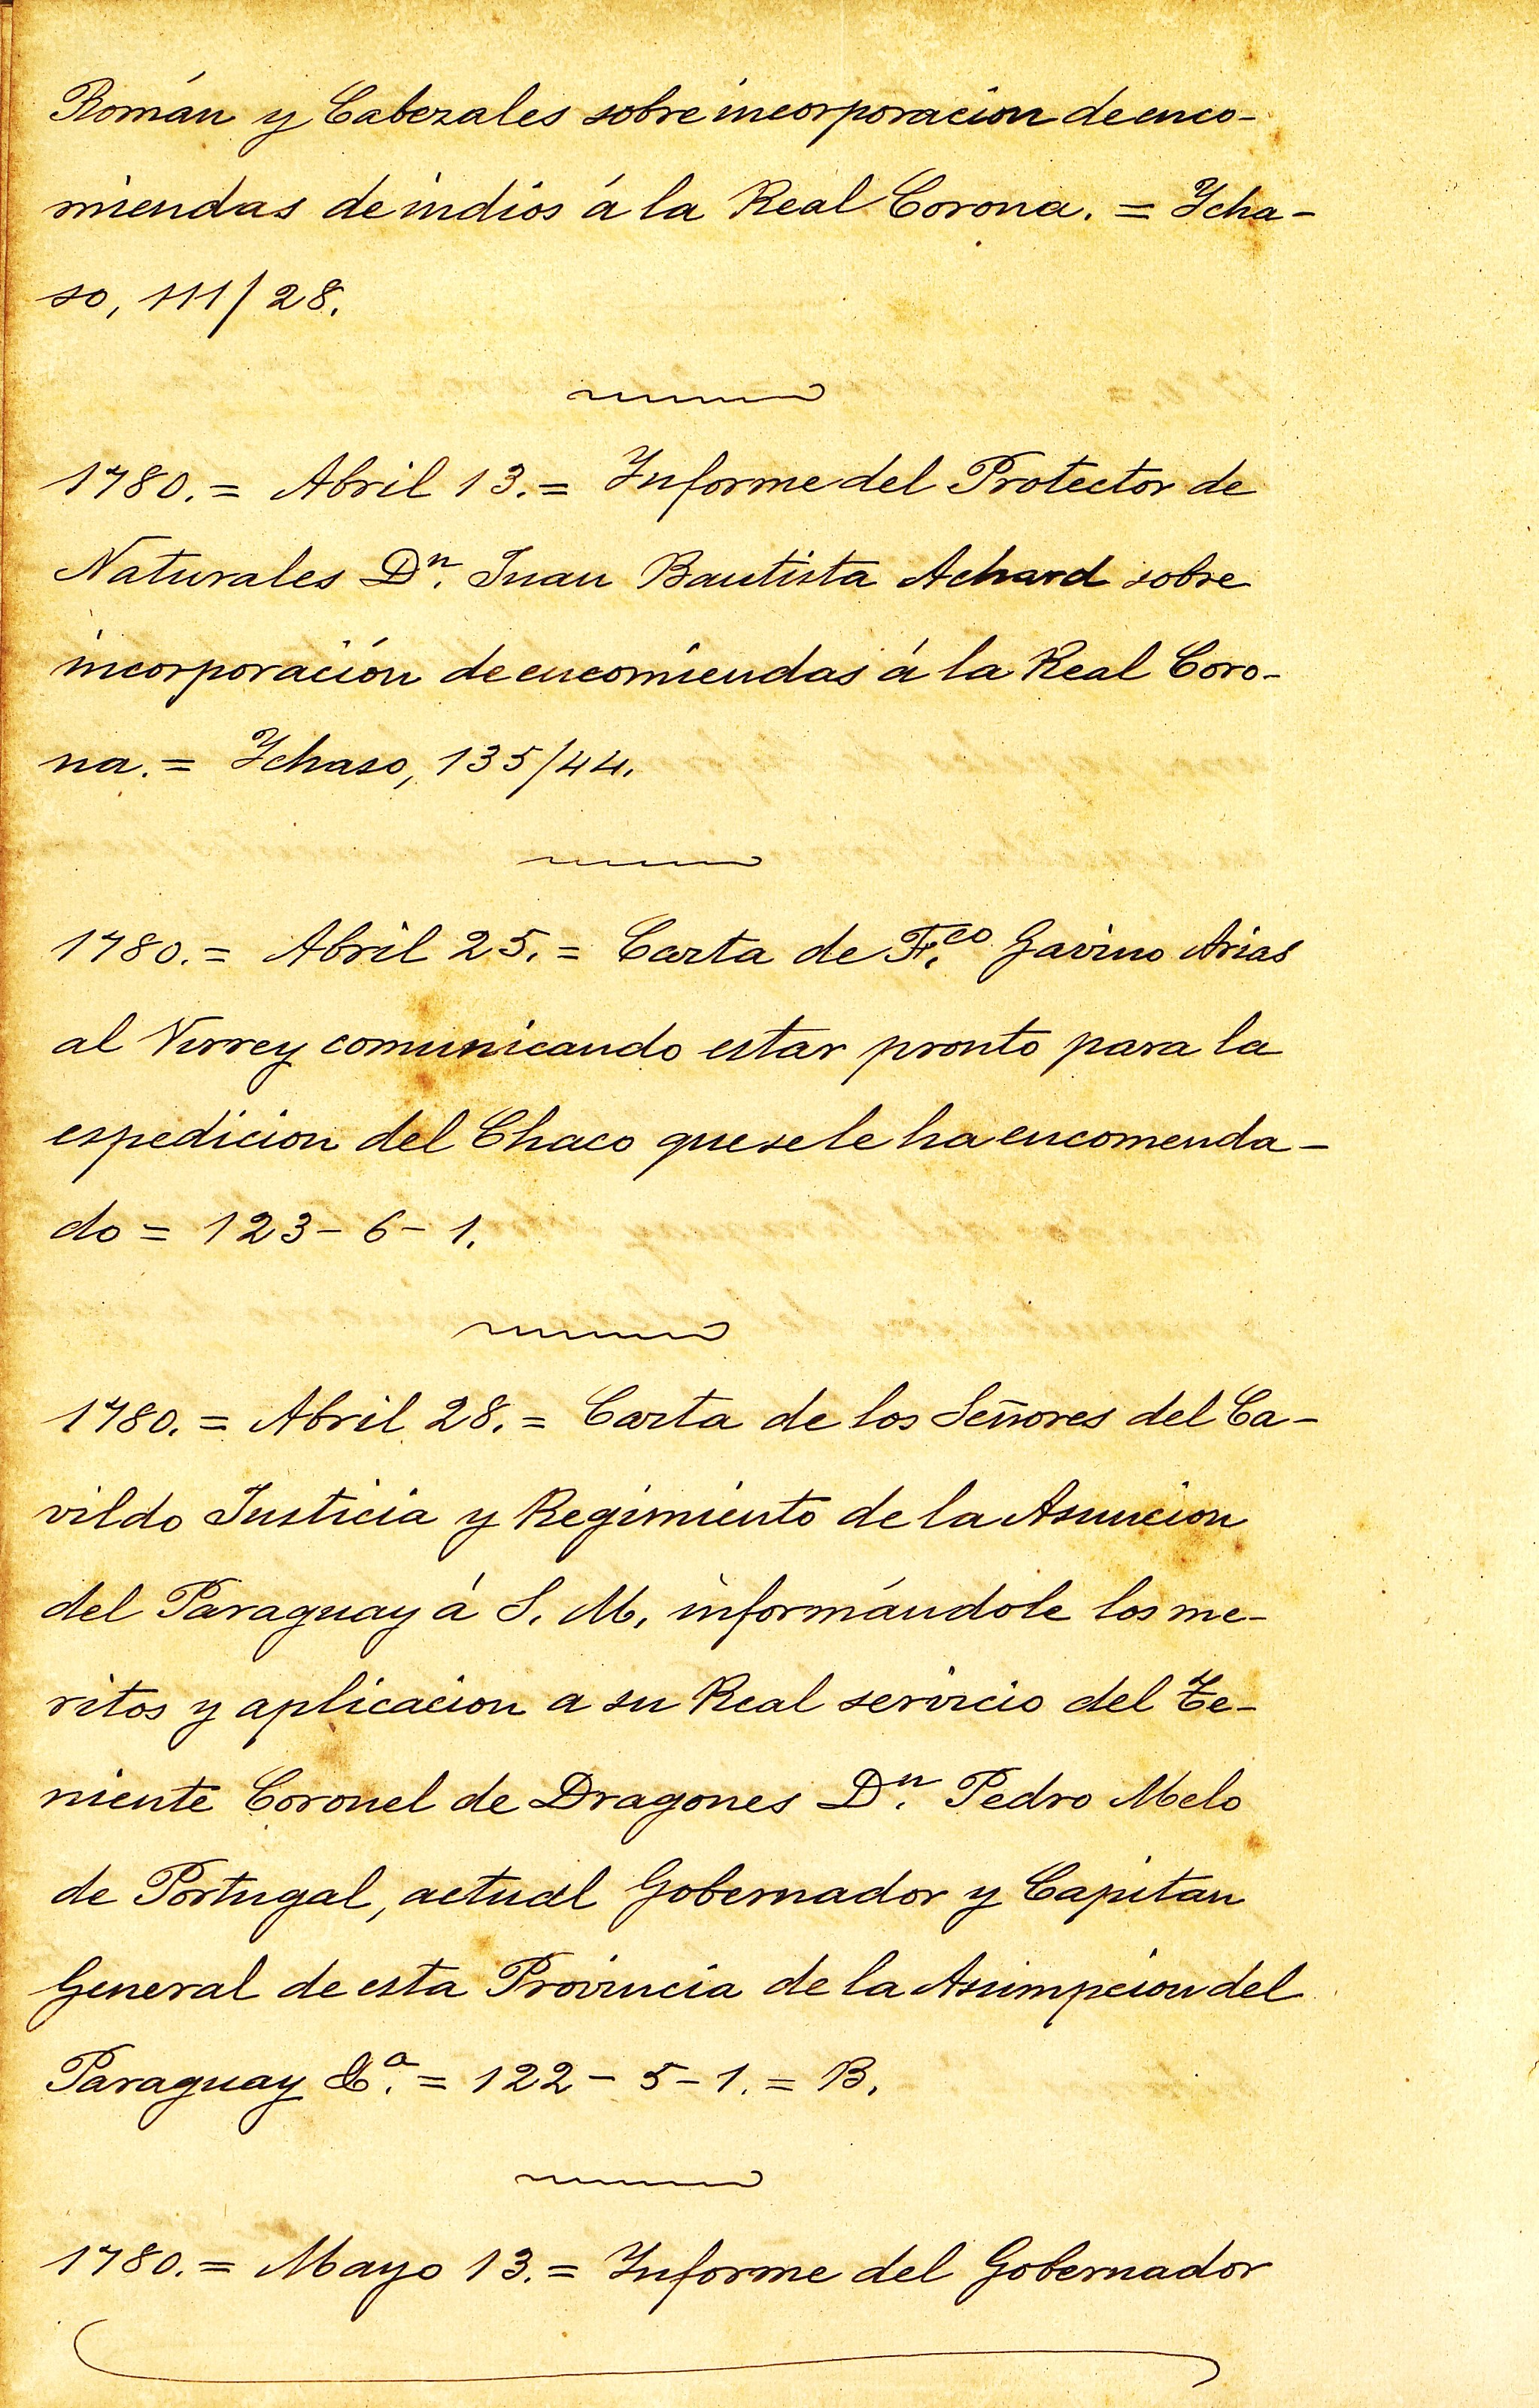 Román y Cabezales sobre incorporacion de enco-
miendas de indios á la Real Corona. = Ycha-
so, 111/28.
1780. = Abril 13. = Informe del Protector de
Naturales Dn. Juan Bautista Achard sobre
incorporación de encomiendas á la Real Coro-
na. = Ychaso, 135/44.
1780. = Abril 25. = Carta de Fco. Gavino Arias
al Virrey comunicando estar pronto para la
espedicion del Chaco que se le ha encomenda-
do = 123 - 6 - 1.
1780. = Abril 28. = Carta de los Señores del Ca-
vildo Justicia y Regimiento de la Asuncion
del Paraguay á S. M. informándole los me-
ritos y aplicacion a su Real servicio del Te-
niente Coronel de Dragones Dn. Pedro Melo
de Portugal, actual Gobernador y Capitan
General de esta Provincia de la Asumpcion del
Paraguay &a. = 122 - 5 - 1. = B.
1780. = Mayo 13. = Informe del Gobernador